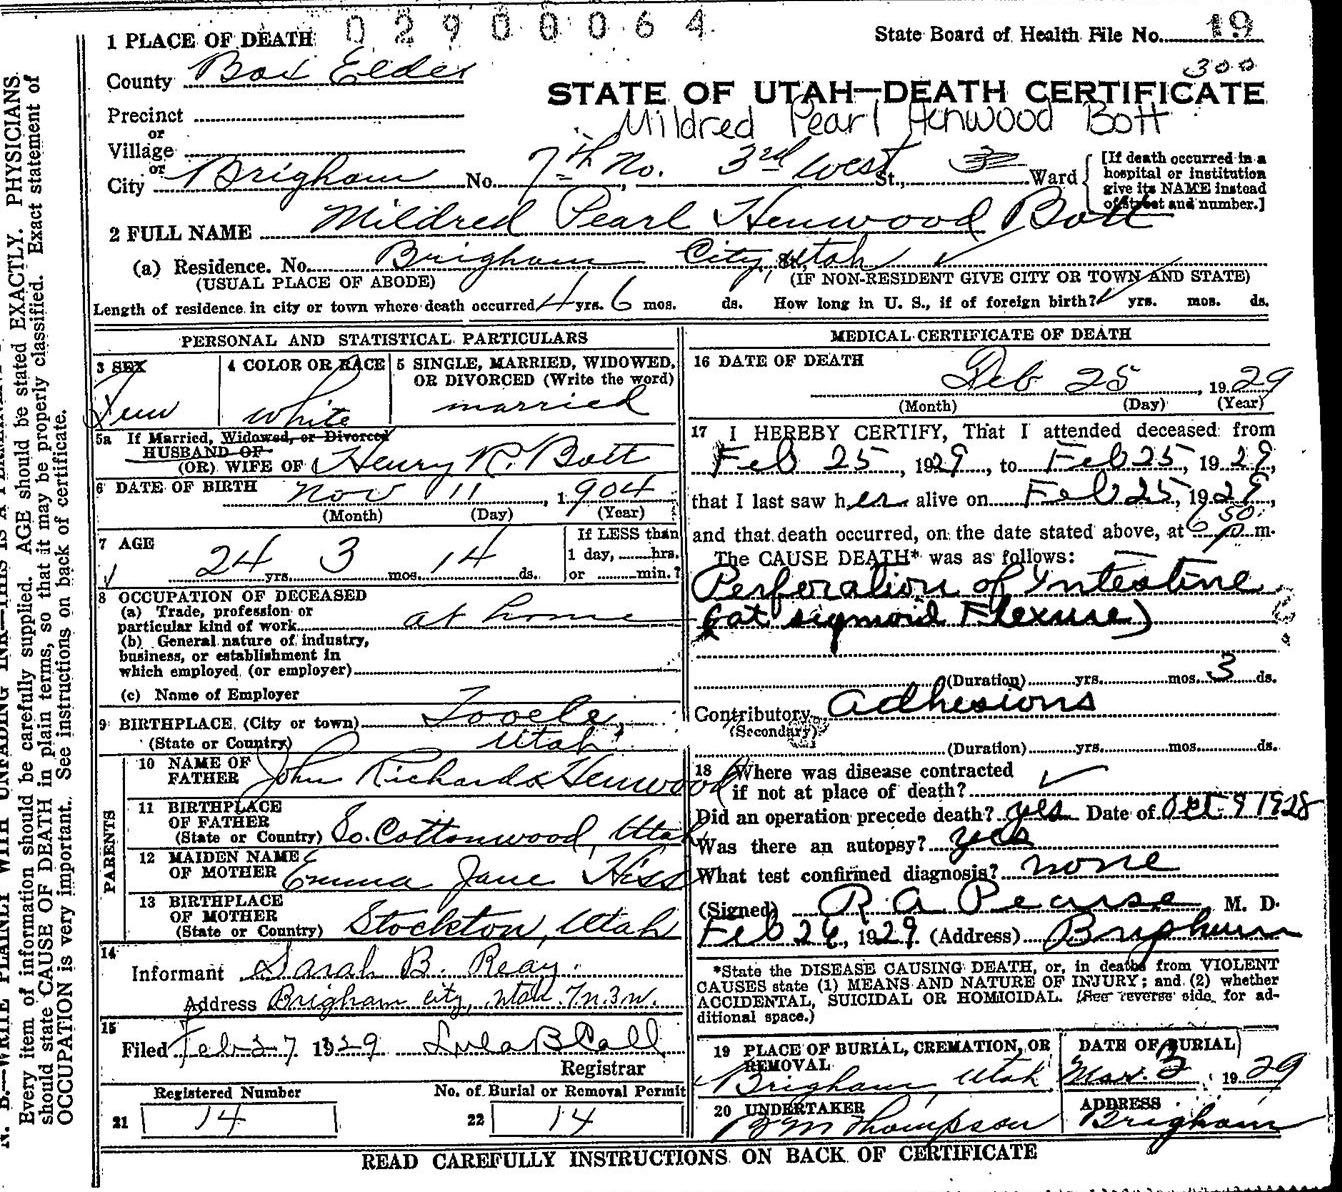 02900064
1 PLACE OF DEATH
State Board of Health File No. 19
County Box Elder
300
STATE OF UTAH—DEATH CERTIFICATE
Precinct
Mildred Pearl Henwood Bott
or
Village
or
City Brigham No. 7th No. 3rd West St., Ward
[If death occurred in a hospital or institution give its NAME instead of street and number.]
2 FULL NAME Mildred Pearl Henwood Bott
(a) Residence. No. Brigham City, St., Utah
(USUAL PLACE OF ABODE) (IF NON-RESIDENT GIVE CITY OR TOWN AND STATE)
Length of residence in city or town where death occurred 4 yrs. 6 mos. ds. How long in U. S., if of foreign birth? yrs. mos. ds.
PERSONAL AND STATISTICAL PARTICULARS
3 SEX 4 COLOR OR RACE 5 SINGLE, MARRIED, WIDOWED,
OR DIVORCED (Write the word)
Fem white married
5a If Married, Widowed, or Divorced
HUSBAND OF
(OR) WIFE OF Henry R. Bott
6 DATE OF BIRTH Nov 11, 1904
(Month) (Day) (Year)
7 AGE
24 yrs. 3 mos. 14 ds.
If LESS than
1 day, hrs.
or min.?
8 OCCUPATION OF DECEASED
(a) Trade, profession or
particular kind of work at home
(b) General nature of industry,
business, or establishment in
which employed (or employer)
(c) Name of Employer
9 BIRTHPLACE (City or town) Tooele,
(State or Country) Utah
PARENTS
10 NAME OF
FATHER John Richards Henwood
11 BIRTHPLACE
OF FATHER
(State or Country) So. Cottonwood, Utah
12 MAIDEN NAME
OF MOTHER Emma Jane Hiss
13 BIRTHPLACE
OF MOTHER
(State or Country) Stockton, Utah
14
Informant Sarah B. Reay
Address Brigham city, utah. 7n.3w.
15
Filed Feb 27 1929 Lula B Call
Registrar
Registered Number No. of Burial or Removal Permit
21 14 22 14
MEDICAL CERTIFICATE OF DEATH
16 DATE OF DEATH
Feb 25, 1929
(Month) (Day) (Year)
17 I HEREBY CERTIFY, That I attended deceased from
Feb 25, 1929, to Feb 25, 1929,
that I last saw her alive on Feb 25, 1929,
and that death occurred, on the date stated above, at 6 50 p m.
The CAUSE DEATH* was as follows:
Perforation of Intestine
(at sigmoid Flexure)
(Duration) yrs. mos. 3 ds.
Contributory Adhesions
(Secondary)
(Duration) yrs. mos. ds.
18 Where was disease contracted
if not at place of death?
Did an operation precede death? yes Date of Oct 9 1928
Was there an autopsy? yes
What test confirmed diagnosis? none
(Signed) R A Pearse, M. D.
Feb 26, 1929 (Address) Brigham
*State the DISEASE CAUSING DEATH, or, in deaths from VIOLENT
CAUSES state (1) MEANS AND NATURE OF INJURY; and (2) whether
ACCIDENTAL, SUICIDAL OR HOMICIDAL. (See reverse side for ad-
ditional space.)
19 PLACE OF BURIAL, CREMATION, OR REMOVAL DATE OF BURIAL
Brigham Utah Mar. 3, 1929
20 UNDERTAKER ADDRESS
Thompson Brigham
READ CAREFULLY INSTRUCTIONS ON BACK OF CERTIFICATE
Every item of information should be carefully supplied. AGE should be stated EXACTLY. PHYSICIANS
should state CAUSE OF DEATH in plain terms, so that it may be properly classified. Exact statement of
OCCUPATION is very important. See instructions on back of certificate.